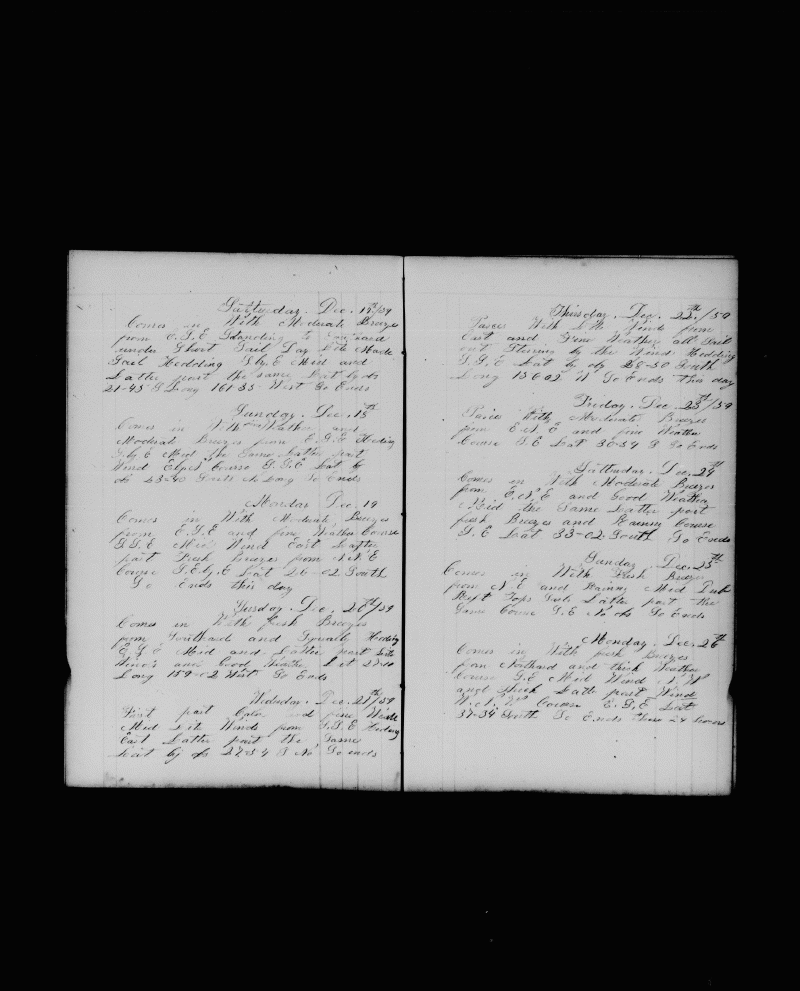 Satturday. Dec. 17th/59
Comes in With Moderate Breeze
from E.S.E Standing to
under Short Sail Day Lite Made
Sail Hedding S.by.E Mid and
Latter part the same Lat by obs
21-43 S Long 161-33 West So Ends
Sunday. Dec. 18th
Comes in With fine Weather and
Moderat Breezes from E.S.E Heding
S.by E Mid the Same Latter part
Wind East Course S.S.E Lat by
ob 23-40 South No Long So Ends
Monday Dec. 19
Comes in With Moderate Breezes
from E.S.E and fine Weather Course
S.S.E Mid Wind East Latter
part Fresh Breezes from N.N.E
Course S.E.by.E Lat 26-02 South
So Ends this day
Tusday. Dec. 20th/59
Comes in With fresh Breezes
from Southard and Squaly Heding
E.S.E Mid and Latter part Lite
Winds and Good Weather Lat 27-10
Long 159-02 West So Ends
Wednsday. Dec. 21th/59
First part Calm and fine Weather
Mid Lite Winds from S.S.E Heding
East Latter part the Same
Lat by ob 27-54 S No So ends
Thirsday. Dec. 22th/59
Passes With Lite Winds from
East and Fine Weather all Sail
out Stering by the Wind Hedding
S.S.E Lat by ob 28-50 South
Long 156-02 W So Ends this day
Friday. Dec. 23th/59
Passes With Moderate Breezes
from E.N.E and fine Weather
Course S.E Lat 30-54 S So Ends
Satturday. Dec. 24th
Comes in With Moderate Breezes
from E.N.E and Good Weather
Mid the Same Latter part
fresh Breezes and Rainny Course
S.E Lat 33-02 South So Ends
Sunday. Dec. 25th
Comes in With Fresh Breezes
from N.E and Rainny Mid Dub
Reft Tops Sails Latter part the
Same Course S.E No obs So Ends
Monday. Dec. 26th
Comes in With fresh Breezes
from Northard and thick Weather
Course S.E Mid Wind N.W
and thick Latter part Wind
W.N.W Course E.S.E Lat
37-34 South So Ends these 24 hours